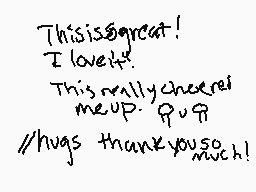 This is great!
I love it!!
This really cheered
me up. QuQ
//hugs thank you so
much!